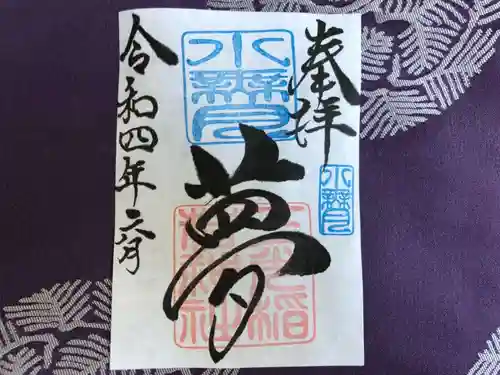 奉拝
水無月
水無月
夢
令和四年六月